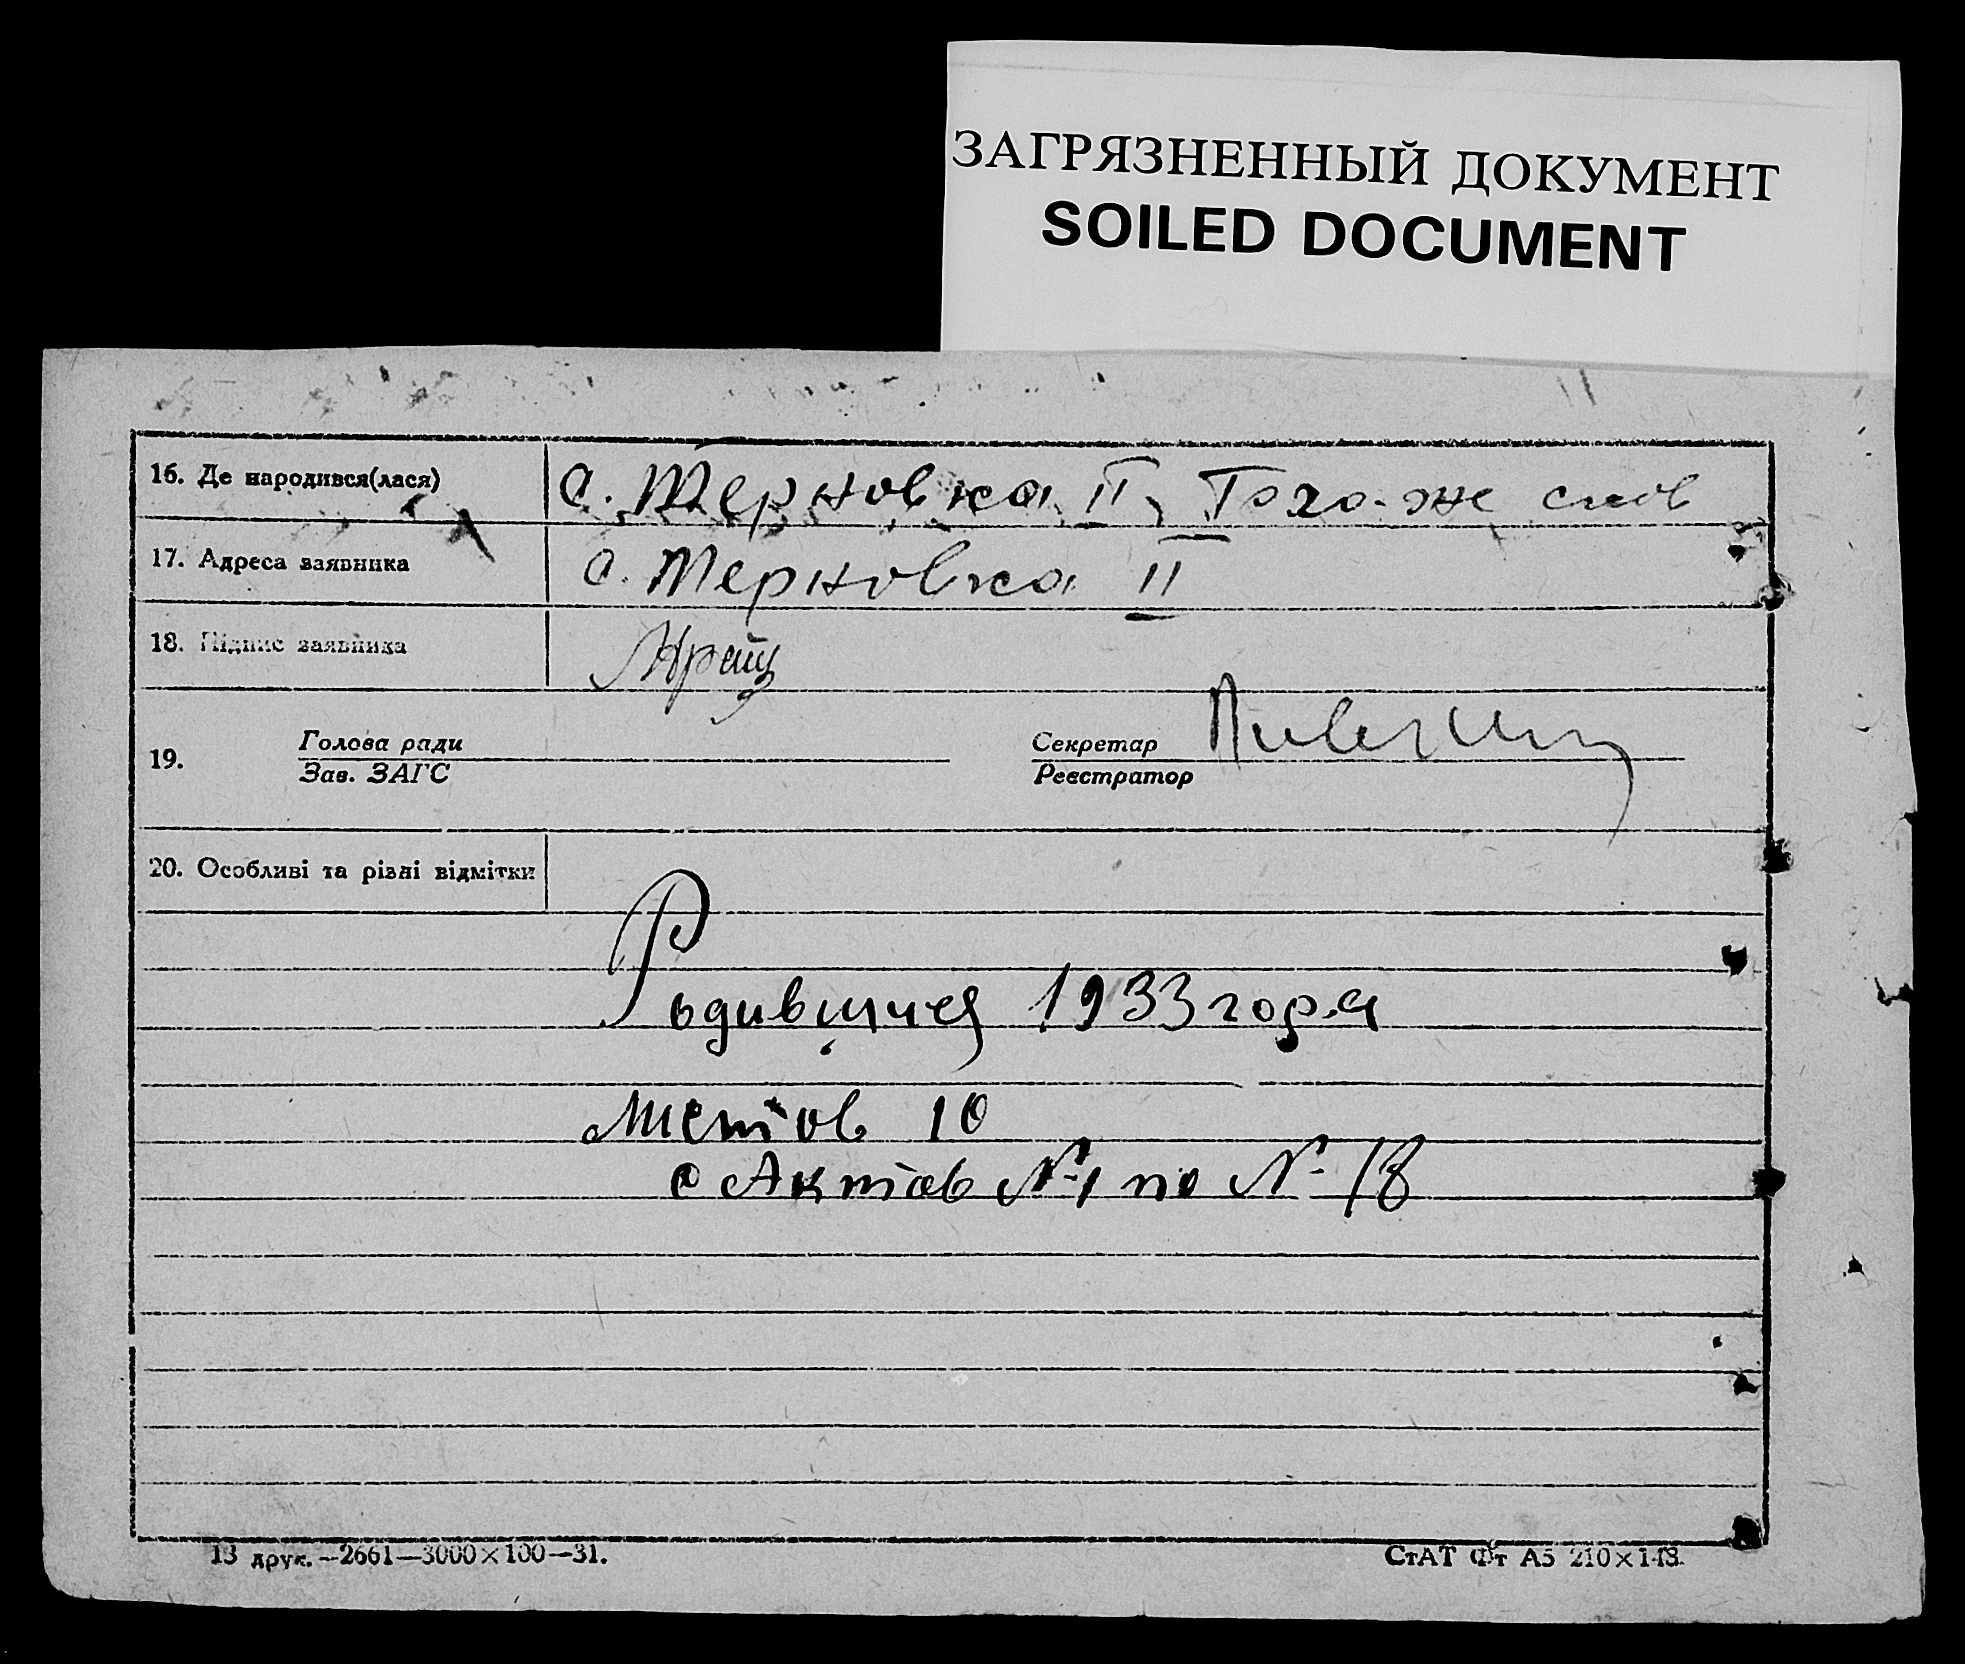 ЗАГРЯЗНЕННЫЙ ДОКУМЕНТ
SOILED DOCUMENT
16. Де народився(лася) с. Терновка II,
17. Адреса заявника с. Терновка II
18. Підпис заявника
19. Голова ради Секретар
Зав. ЗАГС Реєстратор
20. Особливі та різні відмітки
1933 года
10
с Актов №1 по № 18
13 друк. —2661—3000×100—31. СтАТ Фт А5 210×148.